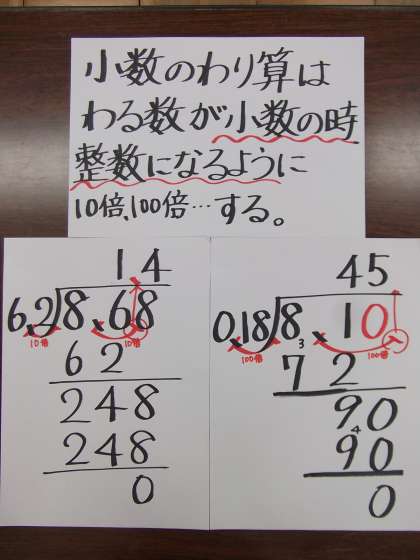 小数のわり算は
わる数が小数の時
整数になるように
10倍、100倍…する。
14
6.2)8.68
10倍 10倍
62
248
248
0
45
0.18)8.10
3
100倍 100倍
72
90
4
90
0